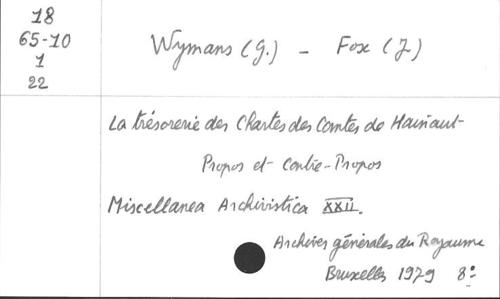 18
65-10
1
22
Wymans (G.) - Fox (J)
La trésorerie des Chartes des Comtes de Hainaut-
Propos et Contre-Propos
Miscellanea Archivistica XXII.
Archives générales du Royaume
Bruxelles 1979 8º